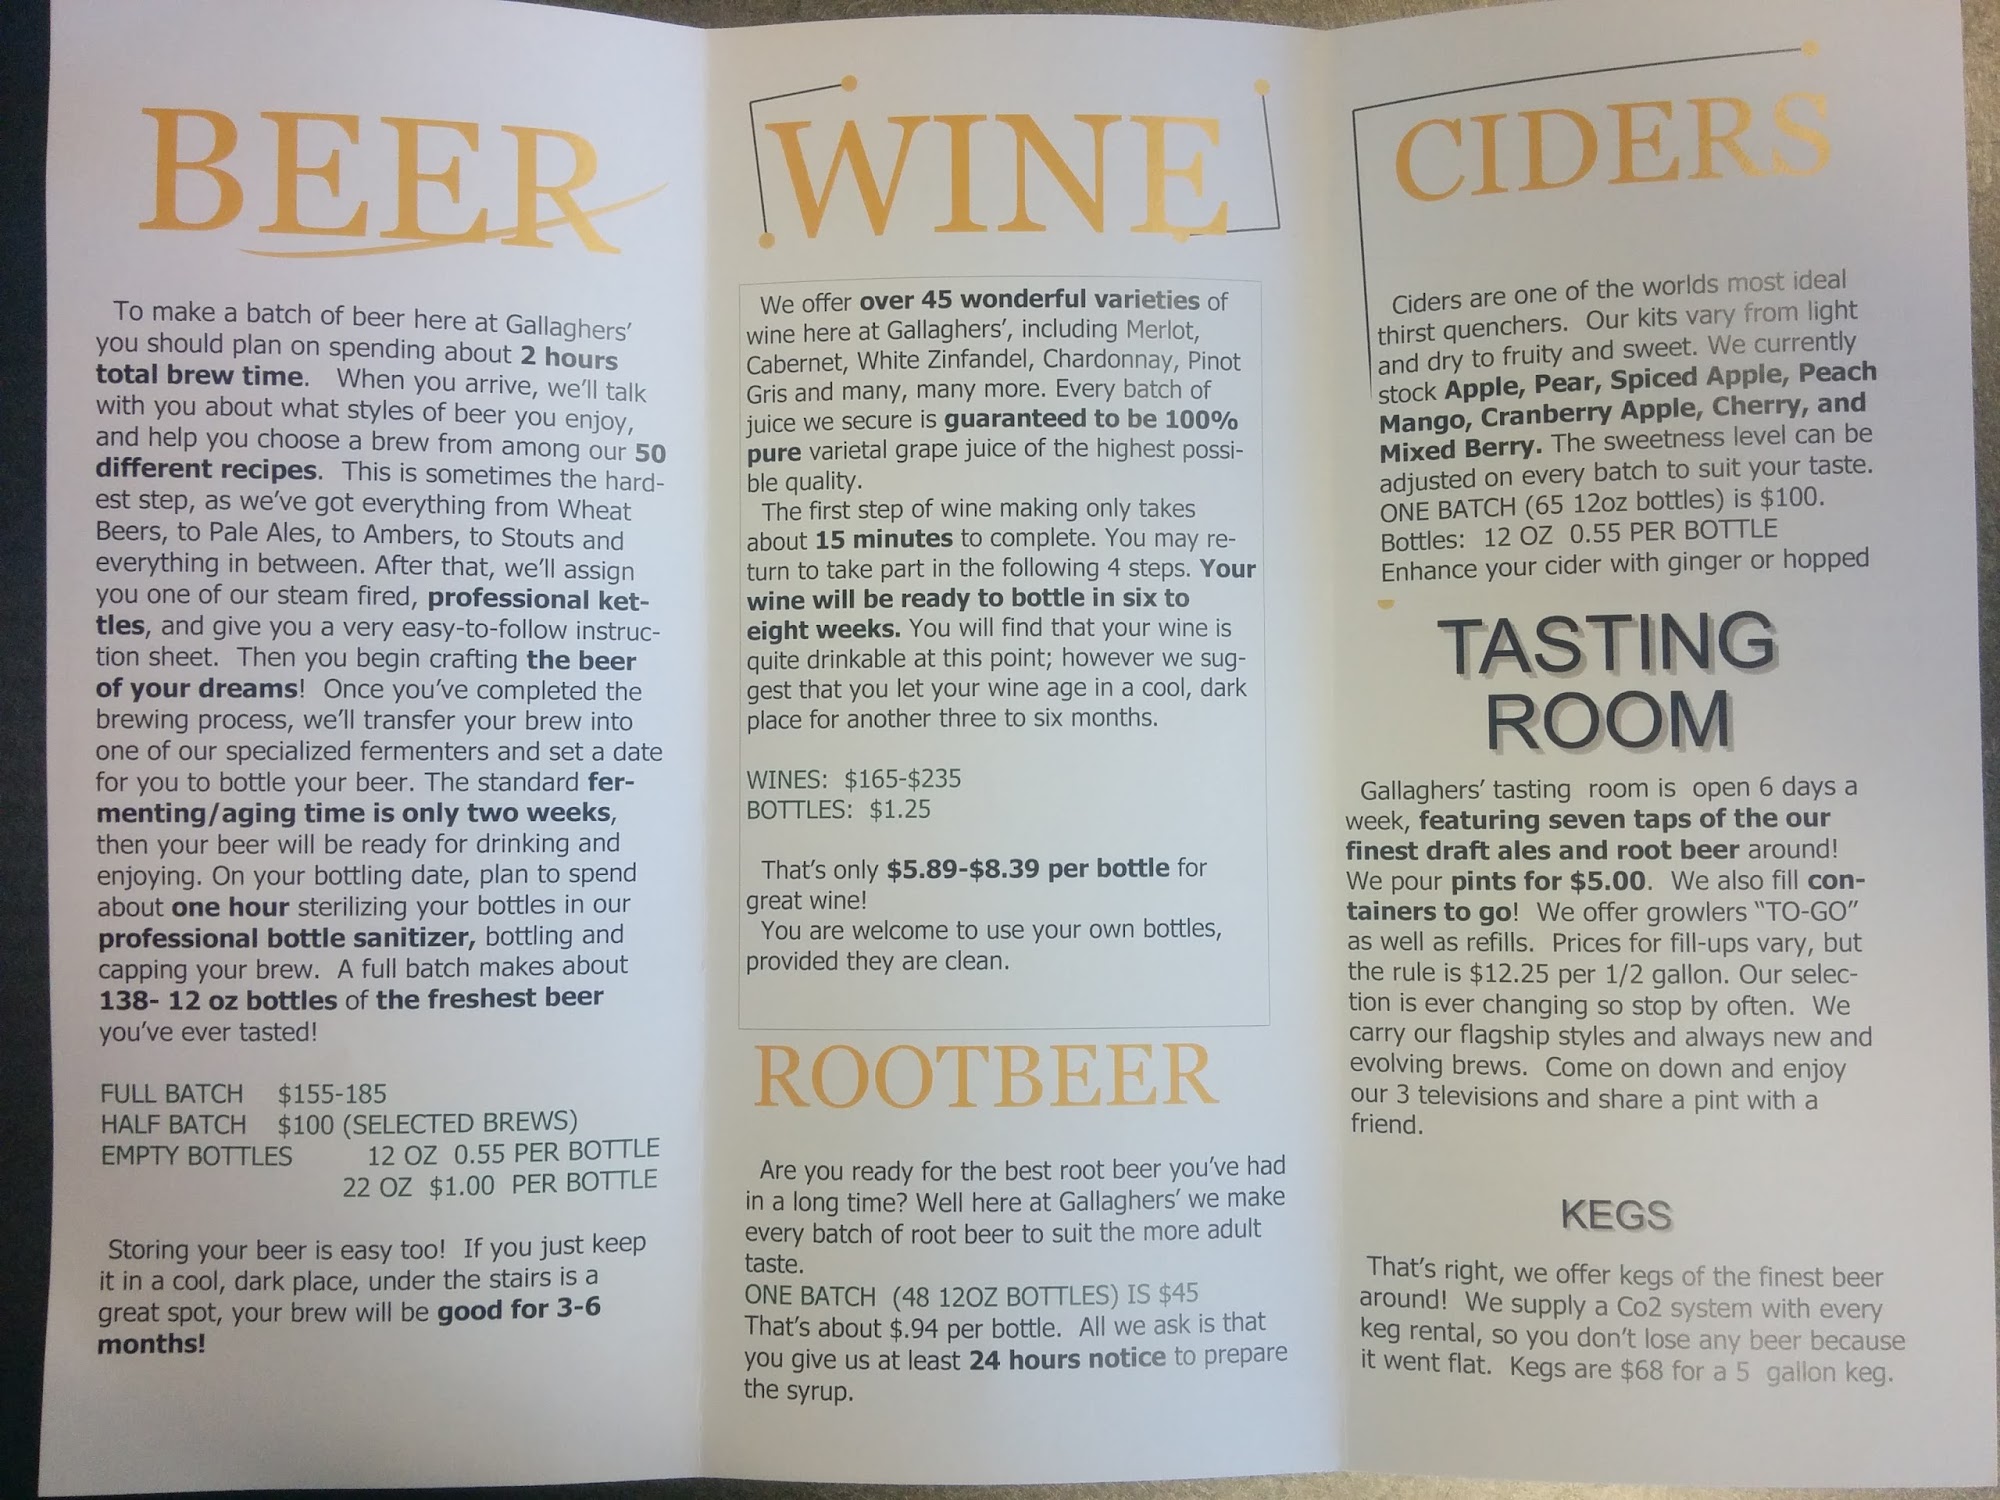 BEER
To make a batch of beer here at Gallaghers’
you should plan on spending about 2 hours
total brew time. When you arrive, we’ll talk
with you about what styles of beer you enjoy,
and help you choose a brew from among our 50
different recipes. This is sometimes the hard-
est step, as we’ve got everything from Wheat
Beers, to Pale Ales, to Ambers, to Stouts and
everything in between. After that, we’ll assign
you one of our steam fired, professional ket-
tles, and give you a very easy-to-follow instruc-
tion sheet. Then you begin crafting the beer
of your dreams! Once you’ve completed the
brewing process, we’ll transfer your brew into
one of our specialized fermenters and set a date
for you to bottle your beer. The standard fer-
menting/aging time is only two weeks,
then your beer will be ready for drinking and
enjoying. On your bottling date, plan to spend
about one hour sterilizing your bottles in our
professional bottle sanitizer, bottling and
capping your brew. A full batch makes about
138- 12 oz bottles of the freshest beer
you’ve ever tasted!
FULL BATCH $155-185
HALF BATCH $100 (SELECTED BREWS)
EMPTY BOTTLES 12 OZ 0.55 PER BOTTLE
22 OZ $1.00 PER BOTTLE
Storing your beer is easy too! If you just keep
it in a cool, dark place, under the stairs is a
great spot, your brew will be good for 3-6
months!
WINE
We offer over 45 wonderful varieties of
wine here at Gallaghers’, including Merlot,
Cabernet, White Zinfandel, Chardonnay, Pinot
Gris and many, many more. Every batch of
juice we secure is guaranteed to be 100%
pure varietal grape juice of the highest possi-
ble quality.
The first step of wine making only takes
about 15 minutes to complete. You may re-
turn to take part in the following 4 steps. Your
wine will be ready to bottle in six to
eight weeks. You will find that your wine is
quite drinkable at this point; however we sug-
gest that you let your wine age in a cool, dark
place for another three to six months.
WINES: $165-$235
BOTTLES: $1.25
That’s only $5.89-$8.39 per bottle for
great wine!
You are welcome to use your own bottles,
provided they are clean.
ROOTBEER
Are you ready for the best root beer you’ve had
in a long time? Well here at Gallaghers’ we make
every batch of root beer to suit the more adult
taste.
ONE BATCH (48 12OZ BOTTLES) IS $45
That’s about $.94 per bottle. All we ask is that
you give us at least 24 hours notice to prepare
the syrup.
CIDERS
Ciders are one of the worlds most ideal
thirst quenchers. Our kits vary from light
and dry to fruity and sweet. We currently
stock Apple, Pear, Spiced Apple, Peach
Mango, Cranberry Apple, Cherry, and
Mixed Berry. The sweetness level can be
adjusted on every batch to suit your taste.
ONE BATCH (65 12oz bottles) is $100.
Bottles: 12 OZ 0.55 PER BOTTLE
Enhance your cider with ginger or hopped
TASTING
ROOM
Gallaghers’ tasting room is open 6 days a
week, featuring seven taps of the our
finest draft ales and root beer around!
We pour pints for $5.00. We also fill con-
tainers to go! We offer growlers “TO-GO”
as well as refills. Prices for fill-ups vary, but
the rule is $12.25 per 1/2 gallon. Our selec-
tion is ever changing so stop by often. We
carry our flagship styles and always new and
evolving brews. Come on down and enjoy
our 3 televisions and share a pint with a
friend.
KEGS
That’s right, we offer kegs of the finest beer
around! We supply a Co2 system with every
keg rental, so you don’t lose any beer because
it went flat. Kegs are $68 for a 5 gallon keg.